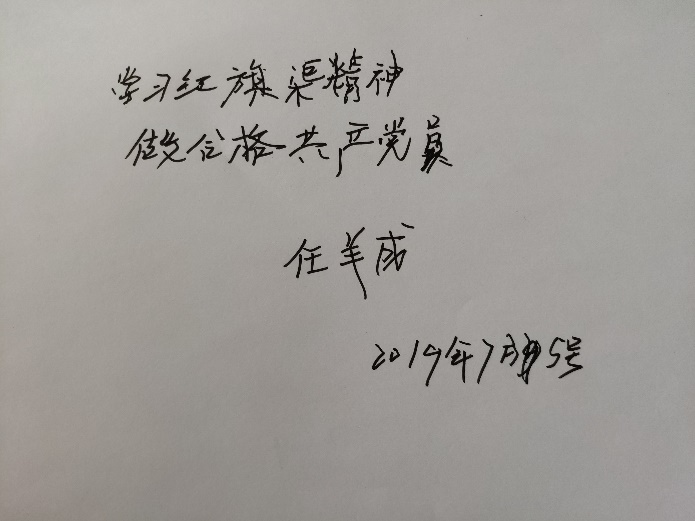 学习红旗渠精神
做合格共产党员
任羊成
2019年7月5号